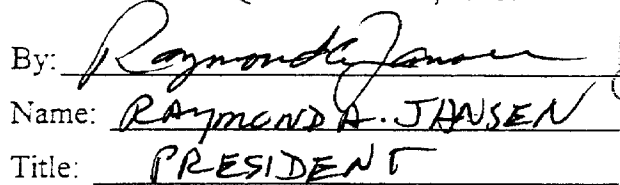 By: Raymond A. Jansen
Name: RAYMOND A. JANSEN
Title: PRESIDENT